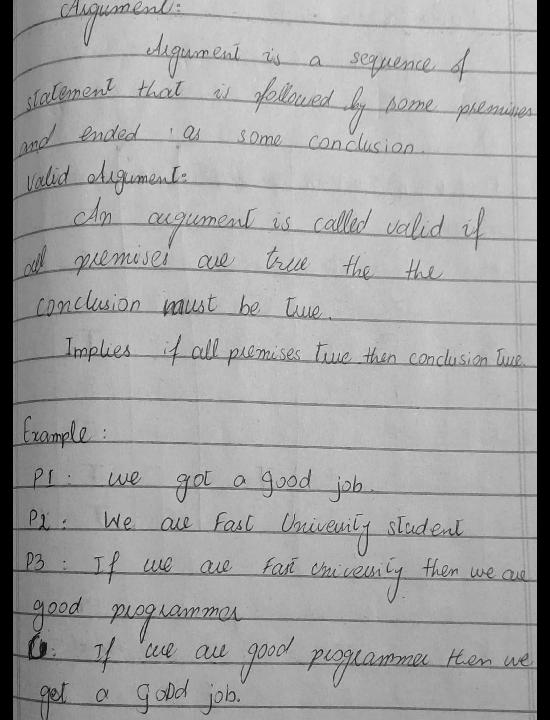 Argument:
Argument is a sequence of
statement that is followed by some premises
and ended as some conclusion.
Valid Argument:
An argument is called valid if
all premises are true the the
conclusion must be true.
Implies if all premises true then conclusion true.
Example:
P1: we got a good job.
P2: We are Fast Univeristy student
P3: If we are Fast University then we are
good programmer
C: If we are good programmer then we
get a good job.